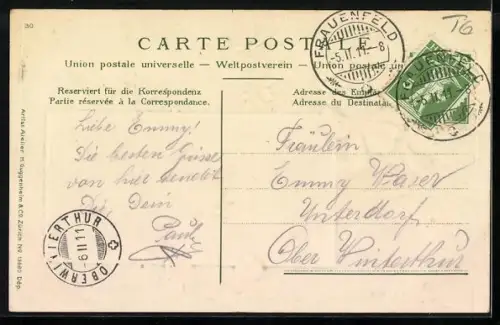 30
T6
CARTE POSTALE
Union postale universelle. – Weltpostverein. – Union postale un
FRAUENFELD
-5.II.11.-8
FRAUENFELD
-5.II.11
Reserviert für die Korrespondenz
Partie réservée à la Correspondance.
Adresse des Empfäng
Adresse du Destinatai
Liebe Emmy!
Die besten Grüsse
von hier sendet
Dir, Dein
Paul
Fräulein
Emmy Waser
Unterdorf
Ober Winterthur
OBERWINTERTHUR
-6.II.11
H. Guggenheim & Co. Zürich No 13680 Dép.